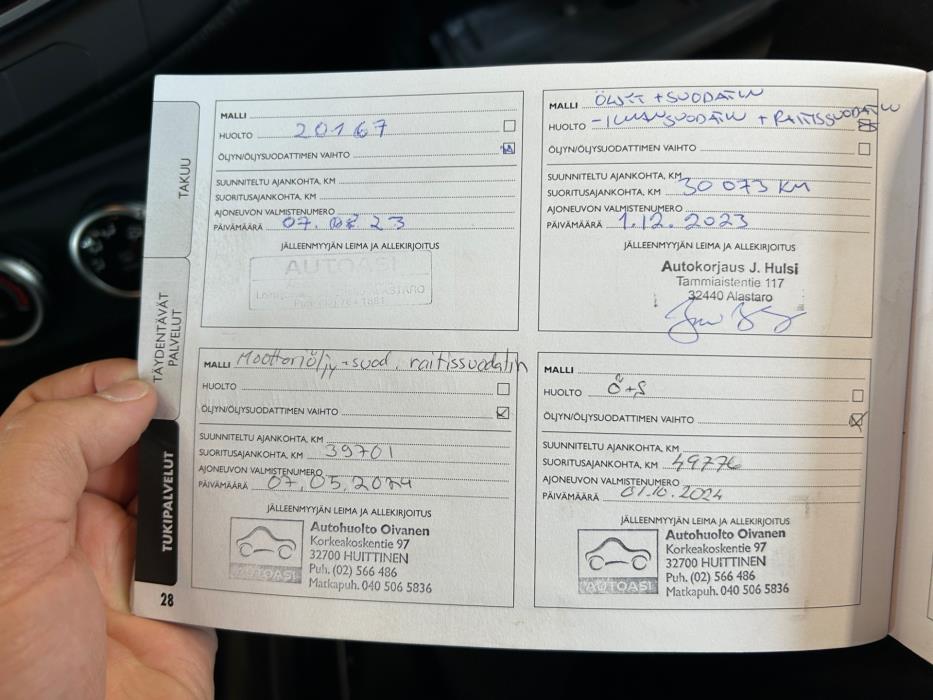 TAKUU
TÄYDENTÄVÄT
PALVELUT
TUKIPALVELUT
28
MALLI
HUOLTO 20167
ÖLJYN/ÖLJYSUODATTIMEN VAIHTO
SUUNNITELTU AJANKOHTA, KM
SUORITUSAJANKOHTA, KM
AJONEUVON VALMISTENUMERO
PÄIVÄMÄÄRÄ 07. 23
JÄLLEENMYYJÄN LEIMA JA ALLEKIRJOITUS
AUTOASI
MALLI ÖLJYT + SUODATIN
HUOLTO - ILMANSUODATIN + RAITISSUODATIN
ÖLJYN/ÖLJYSUODATTIMEN VAIHTO
SUUNNITELTU AJANKOHTA, KM
SUORITUSAJANKOHTA, KM 30 073 KM
AJONEUVON VALMISTENUMERO
PÄIVÄMÄÄRÄ 1.12. 2023
JÄLLEENMYYJÄN LEIMA JA ALLEKIRJOITUS
Autokorjaus J. Hulsi
Tammiaistentie 117
32440 Alastaro
MALLI Moottoriöljy + suod, raitissuodatin
HUOLTO
ÖLJYN/ÖLJYSUODATTIMEN VAIHTO
SUUNNITELTU AJANKOHTA, KM
SUORITUSAJANKOHTA, KM 39701
AJONEUVON VALMISTENUMERO
PÄIVÄMÄÄRÄ 07.05.2024
JÄLLEENMYYJÄN LEIMA JA ALLEKIRJOITUS
AUTOASI
Autohuolto Oivanen
Korkeakoskentie 97
32700 HUITTINEN
Puh. (02) 566 486
Matkapuh. 040 506 5836
MALLI
HUOLTO Ö+S
ÖLJYN/ÖLJYSUODATTIMEN VAIHTO
SUUNNITELTU AJANKOHTA, KM
SUORITUSAJANKOHTA, KM 49776
AJONEUVON VALMISTENUMERO
PÄIVÄMÄÄRÄ 01.10.2024
JÄLLEENMYYJÄN LEIMA JA ALLEKIRJOITUS
AUTOASI
Autohuolto Oivanen
Korkeakoskentie 97
32700 HUITTINEN
Puh. (02) 566 486
Matkapuh. 040 506 5836